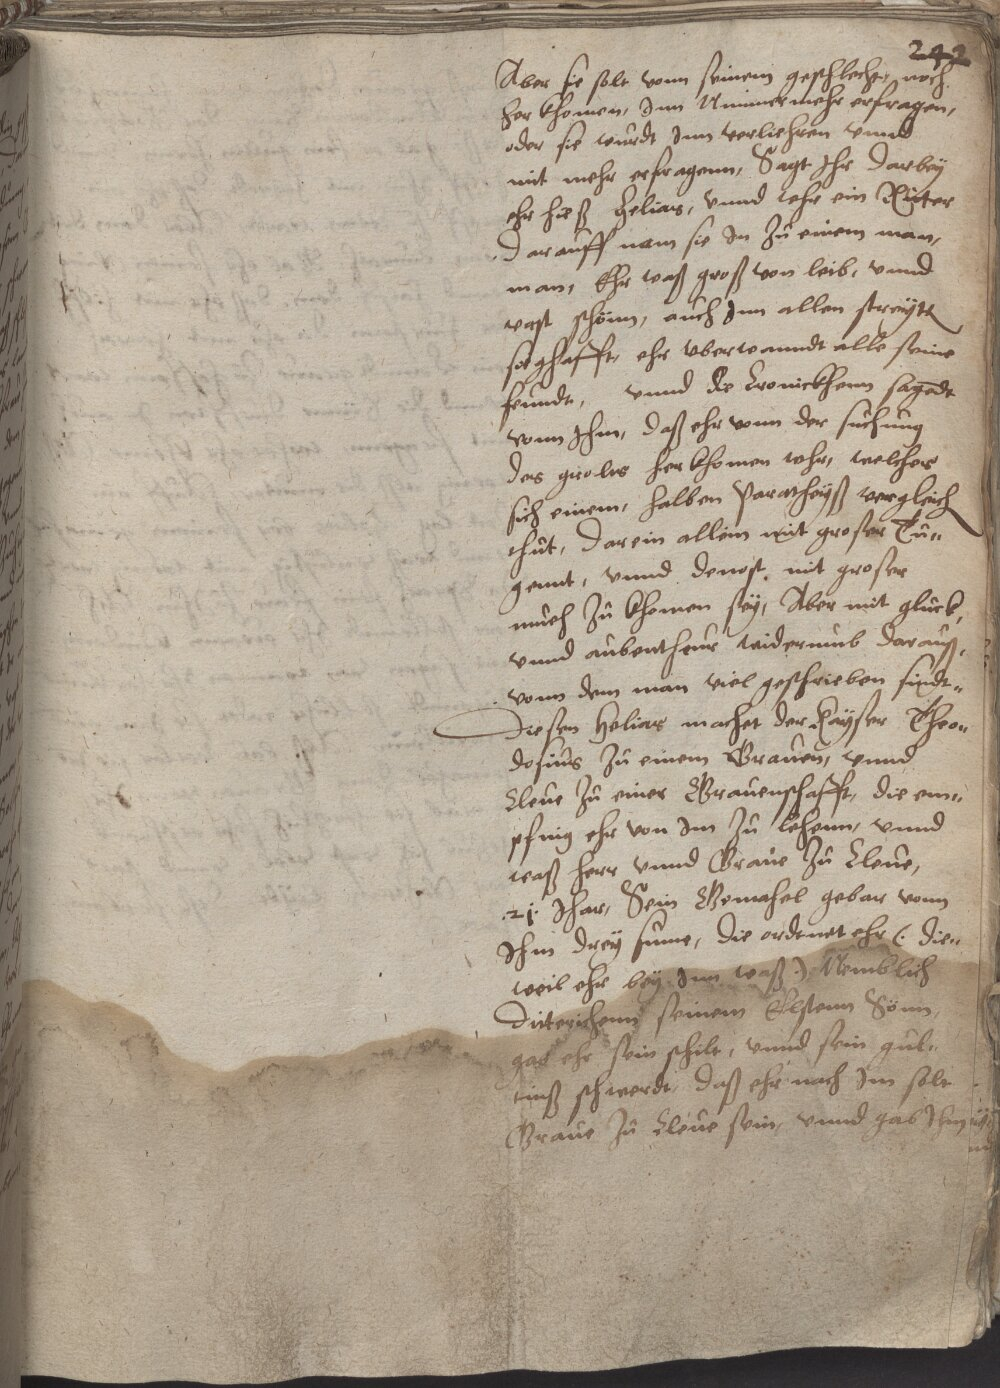 242
Aber sie solt vonn seinem geschlecht, noch
herkhomen, Inn Nimmermehr erfragen,
oder sie wurdt Inn verliehren vnnd
nit mehr erfragenn, Sagt Ihr darbey
ehr hieß Helias, vnnd wehr ein Ritter
darauff nam sie In zu einem man,
man, Ehr waß groß von leib, vnnd
vast schönn, auch Inn allen streytt
sieghafft, ehr vberwanndt alle seine
feundt, vnnd die Cronickhenn sagedt
vonn Ihm, daß ehr vonn der suchung
des groles herkhomen wehr, welches
sich einem, halben Paratheyß vergleich
thut, darein allein mit groser Tu-
gennt, vnnd denost, mit groser
mueh zu khomen sey, Aber mit gluck,
vnnd aubentheur widerumb darauß,
vonn dem man viel geschrieben findt-
Diesen Helias machet der Kayser Theo-
dosius zu einem Grauen, vnnd
Cleue zu einer Grauenschafft, die em-
pfing ehr von Im zu lehenn, vnnd
waß herr vnnd Graue zu Cleue,
.21. Ihar, Sein Gemahel gebar vonn
Ihm drey sunne, die ordtnet ehr (: die-
weil ehr bey Inn waß :) Nemblich
Dieterichenn seinem Elstenn Sonn,
gab ehr sein schilt, vnnd sein gul-
tinß schwerdt, daß ehr nach Im solt
Graue zu Cleue sein, vnnd gab Ihm